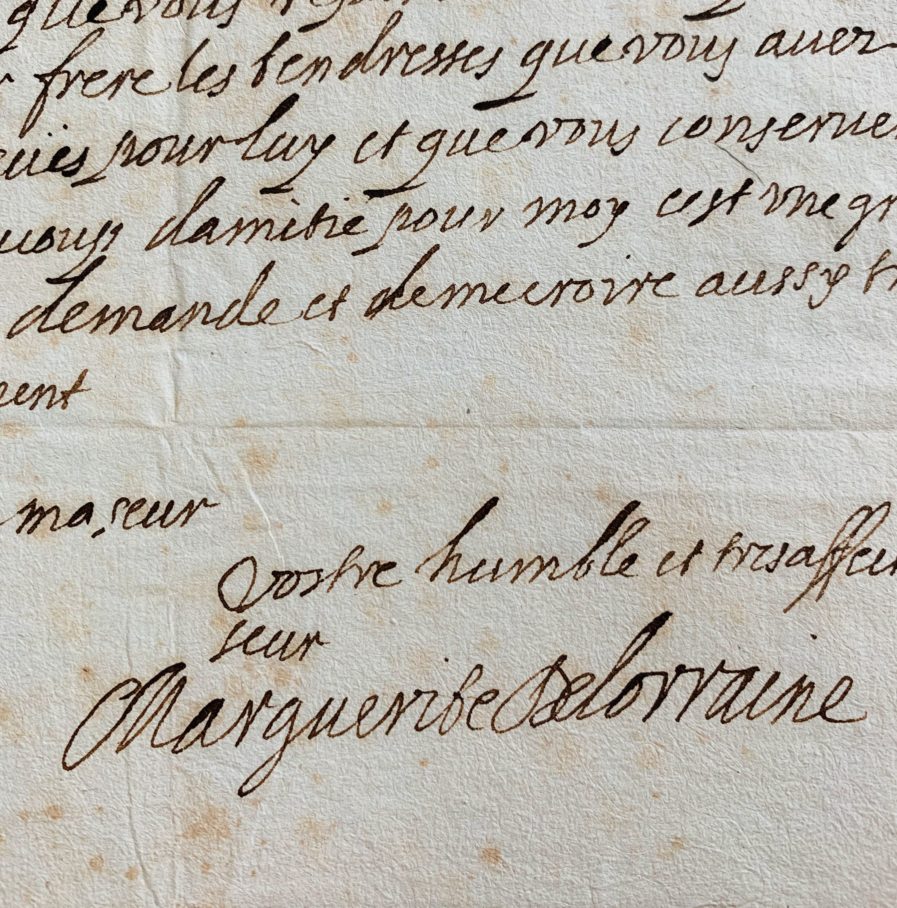 que vous
frere les tendresses que vous auez
eües pour luy et que vous conserue
uoup damitie pour moy cest vne gr
demande et de me croire aussy tr
ment
ma seur
Vostre humble et tresaffec
seur
Marguerite De lorraine